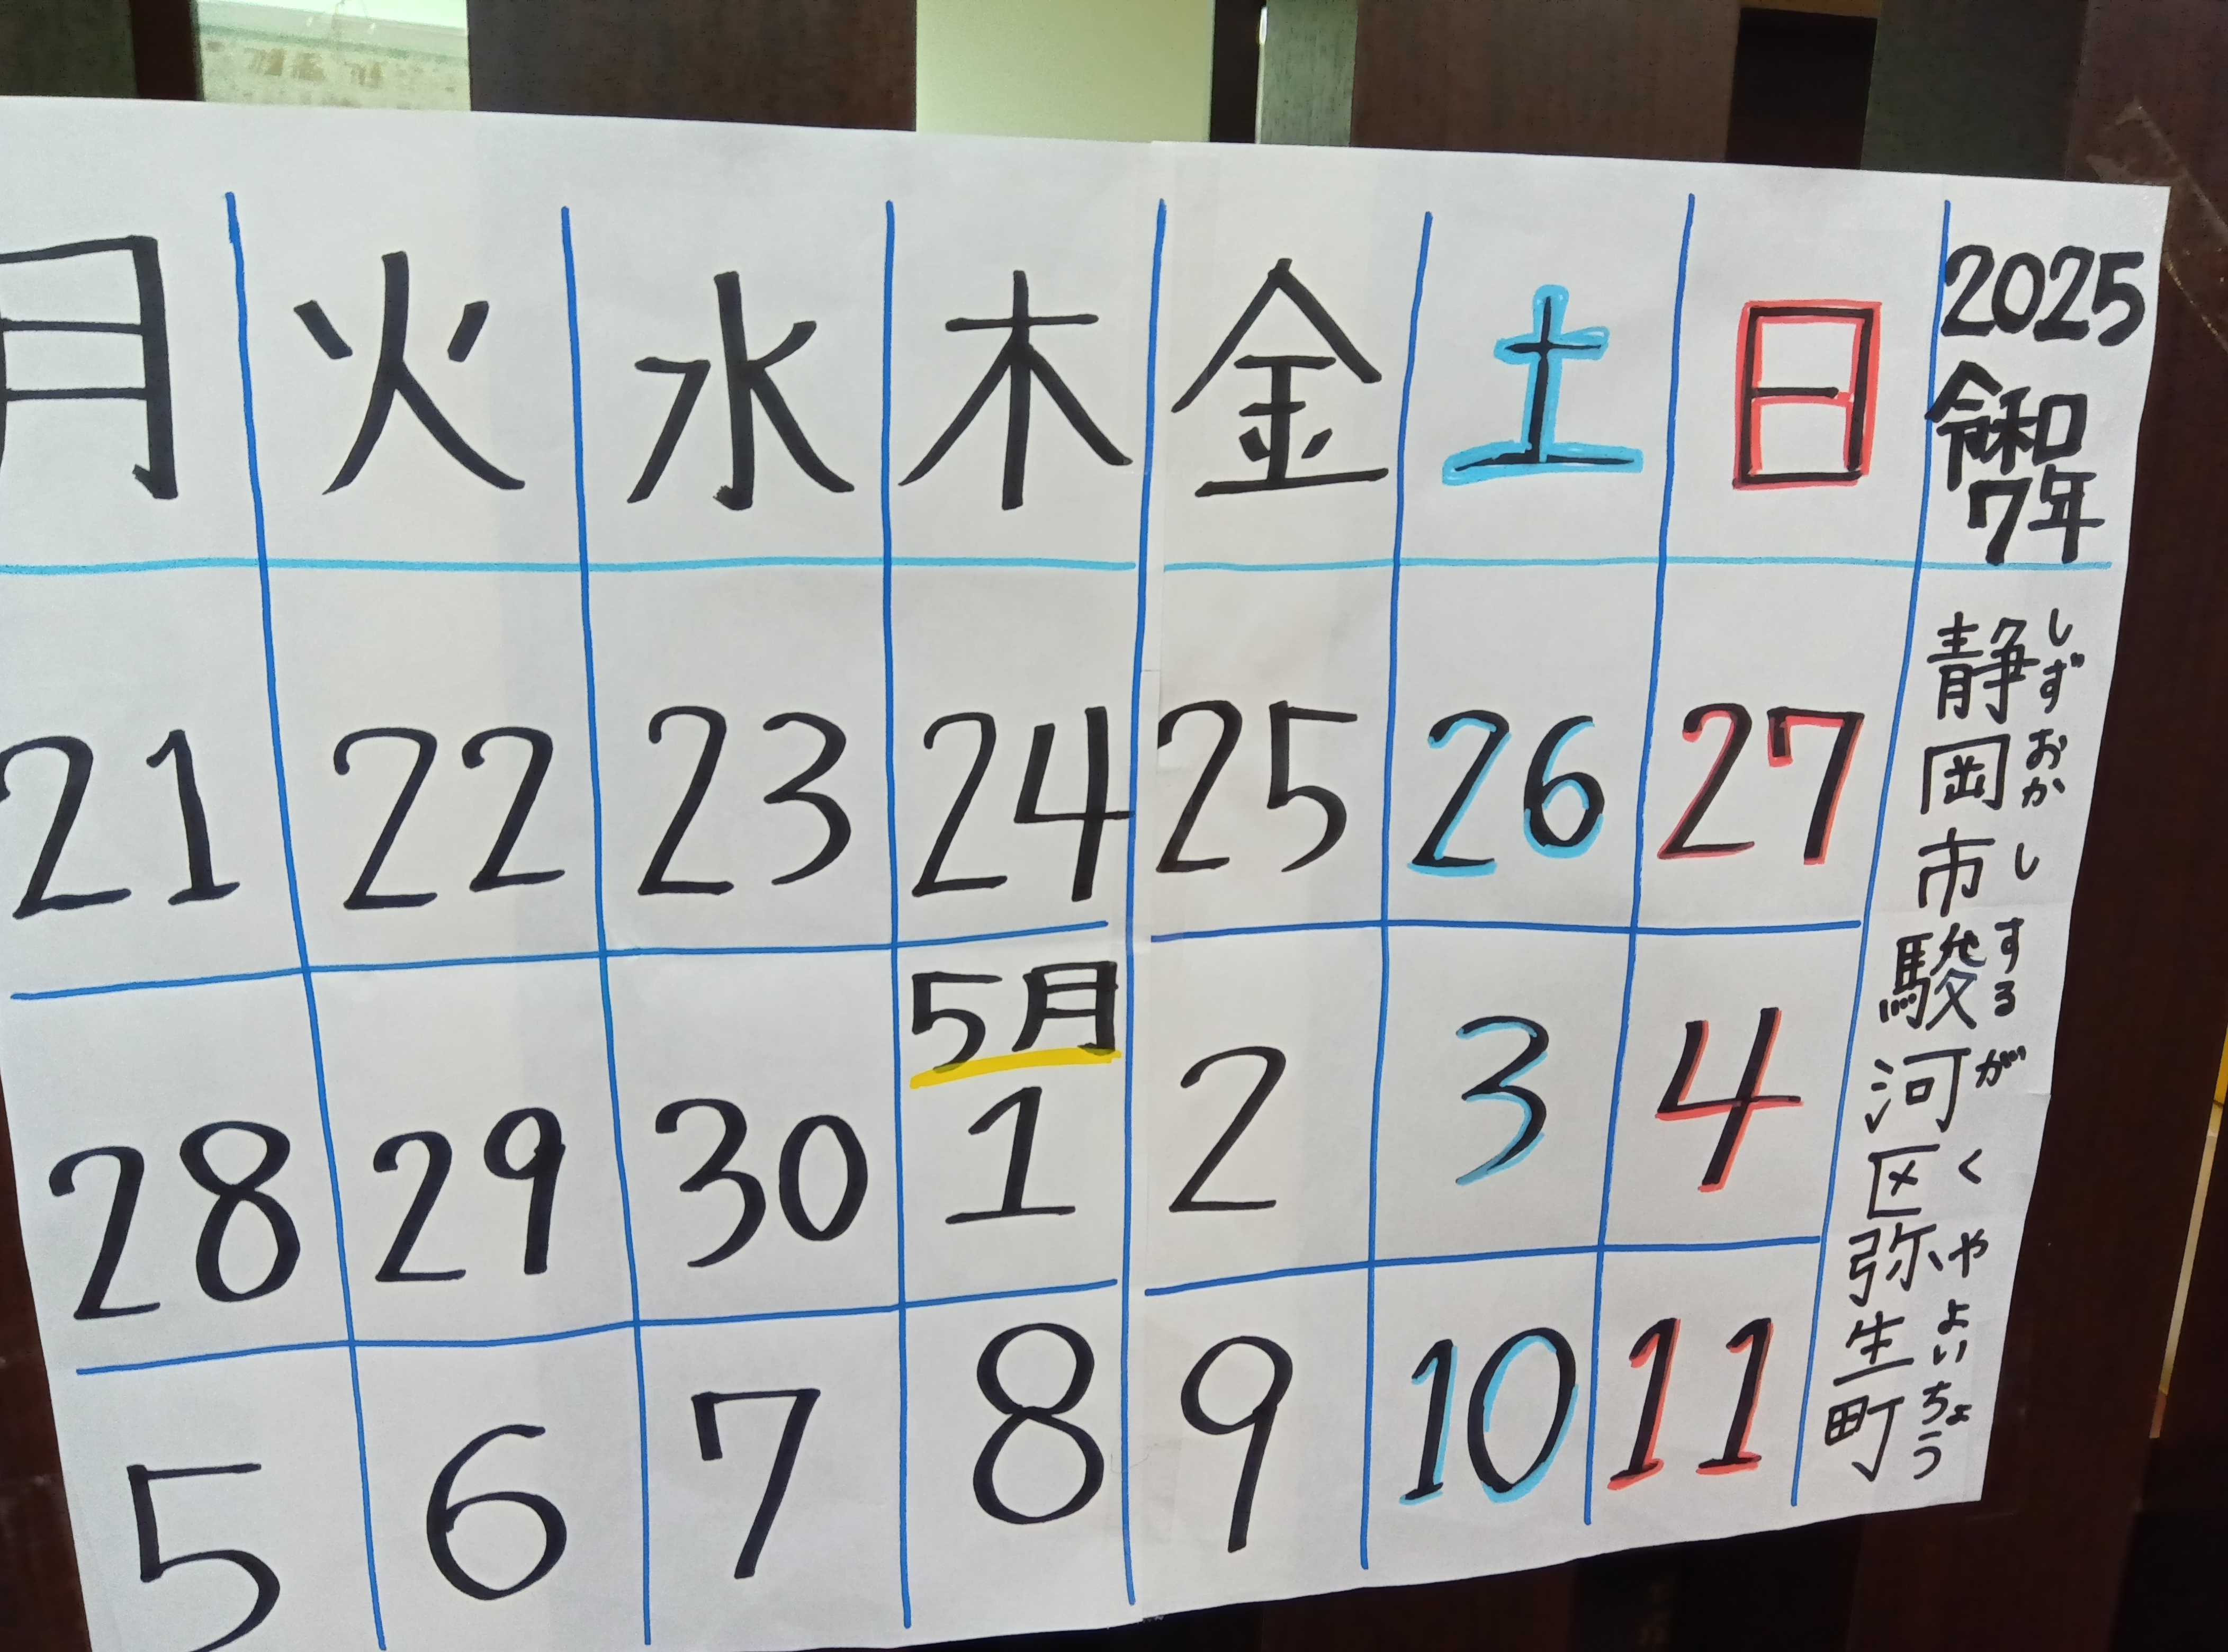 月 火 水 木 金 土 日
21 22 23 24 25 26 27
5月
28 29 30 1 2 3 4
5 6 7 8 9 10 11
2025
令和
7年
静岡市駿河区弥生町
しずおかしするがくやよいちょう